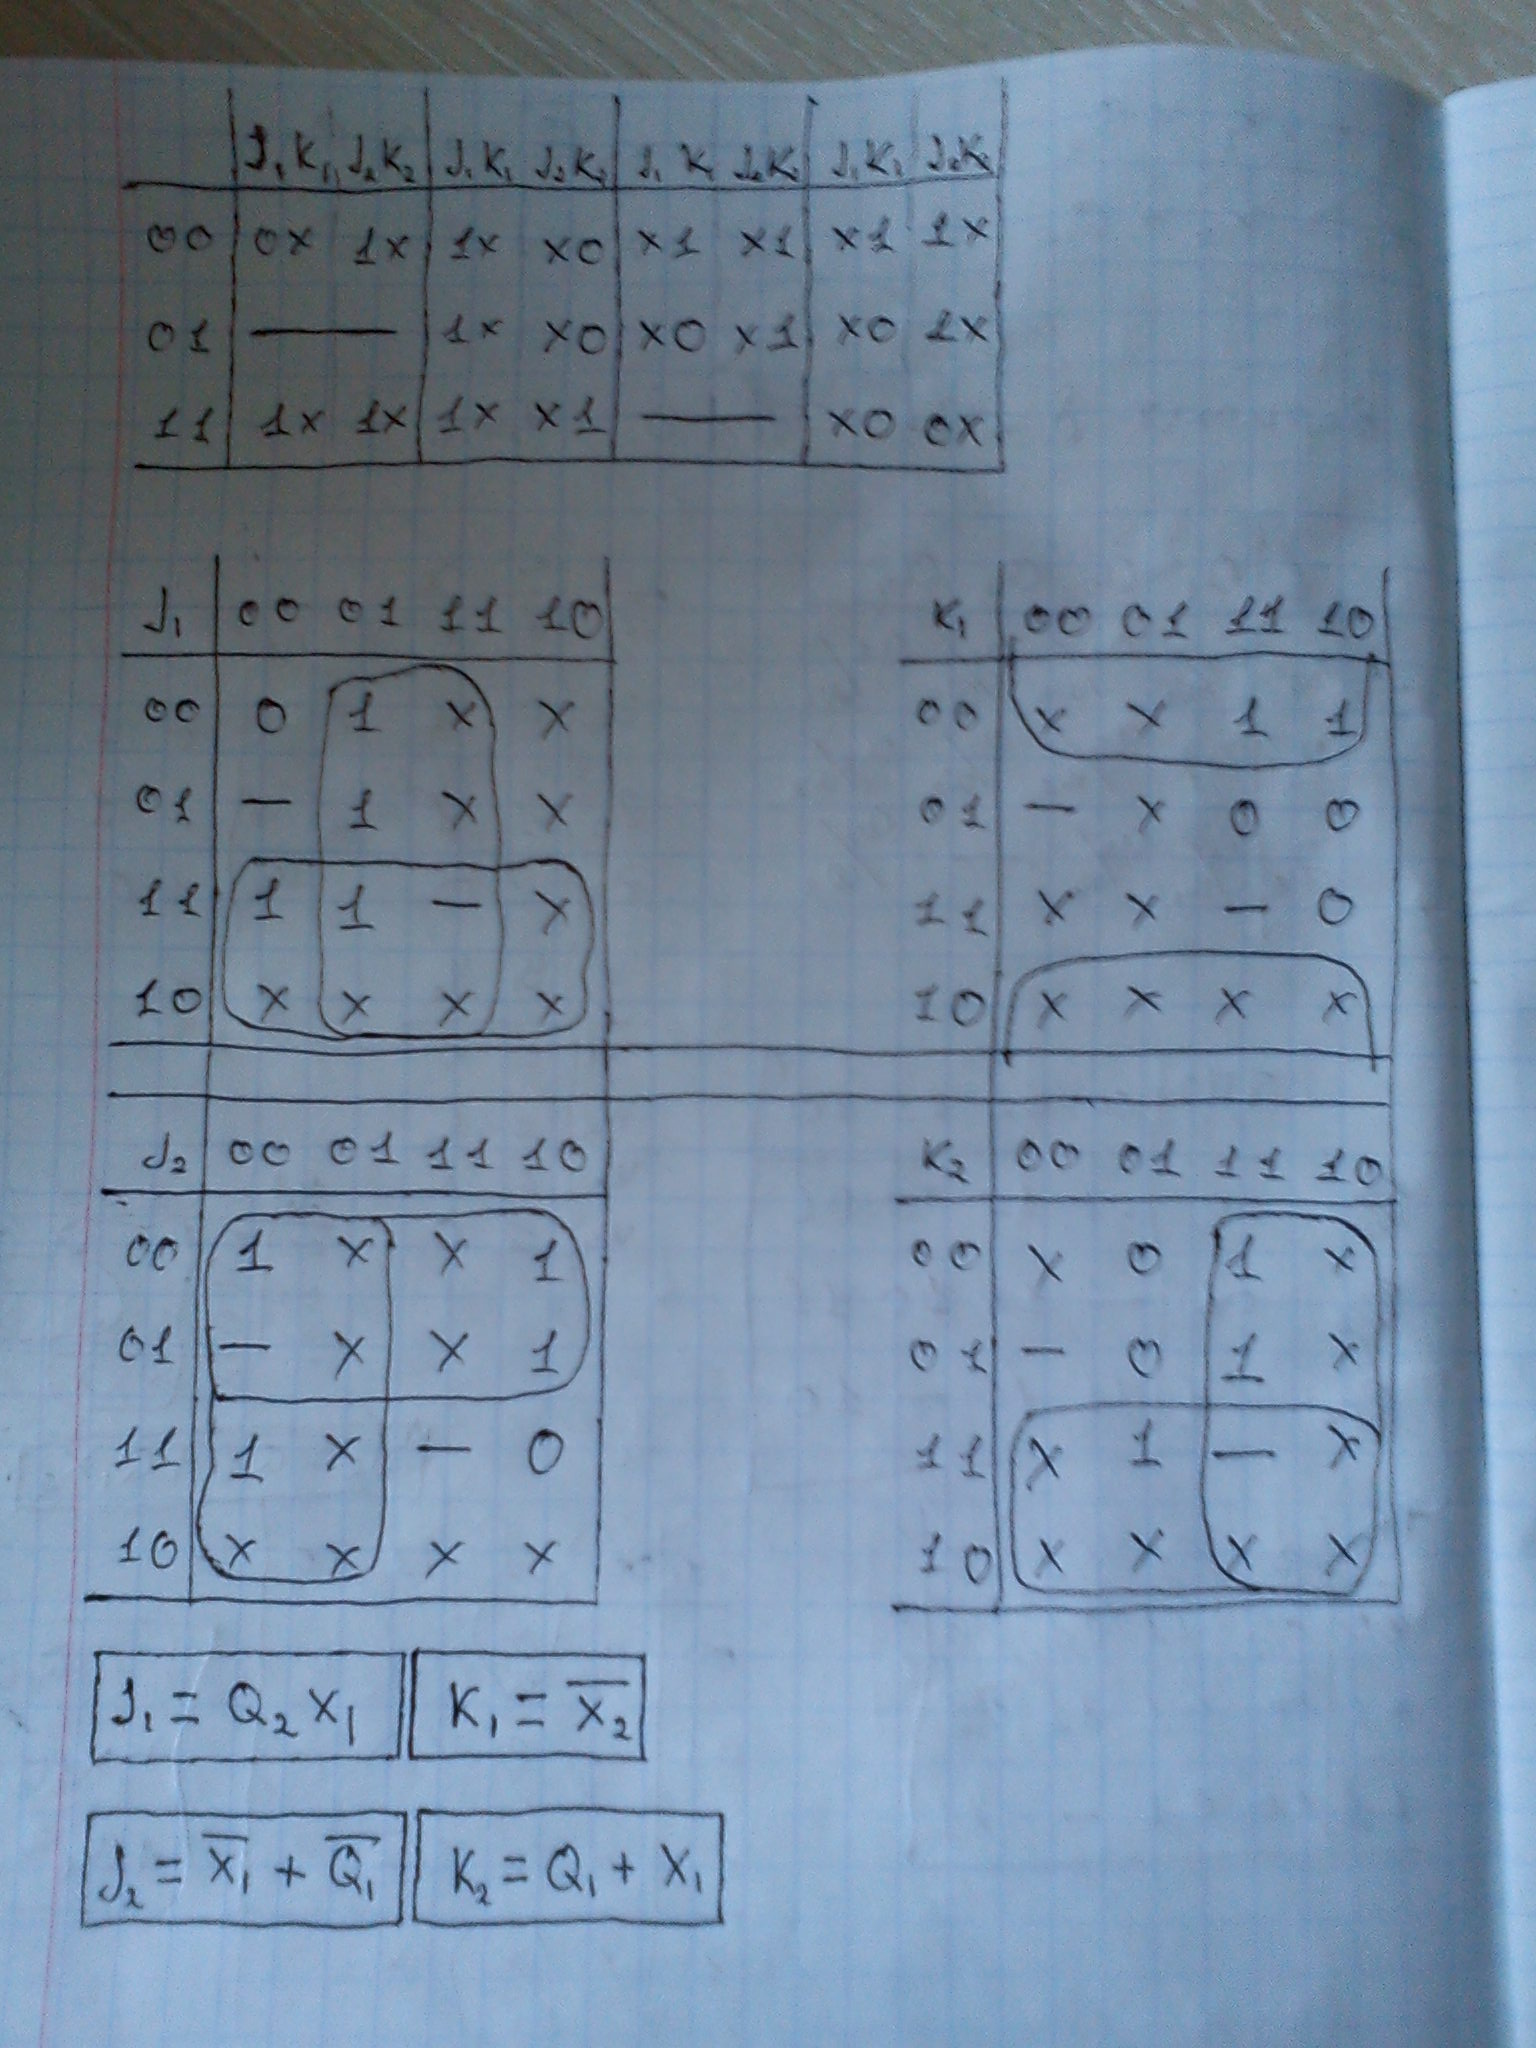 J₁ K₁ J₂ K₂ J₁ K₁ J₂ K₂ J₁ K₁ J₂ K₂ J₁ K₁ J₂ K₂
00 0x 1x 1x x0 x1 x1 x1 1x
01 — 1x x0 x0 x1 x0 1x
11 1x 1x 1x x1 — x0 0x
J₁ 00 01 11 10
00 0 1 x x
01 — 1 x x
11 1 1 — x
10 x x x x
K₁ 00 01 11 10
00 x x 1 1
01 — x 0 0
11 x x — 0
10 x x x x
J₂ 00 01 11 10
00 1 x x 1
01 — x x 1
11 1 x — 0
10 x x x x
K₂ 00 01 11 10
00 x 0 1 x
01 — 0 1 x
11 x 1 — x
10 x x x x
J₁ = Q₂ x₁
K₁ = x̅₂̅
J₂ = x̅₁̅ + Q̅₁̅
K₂ = Q₁ + x₁